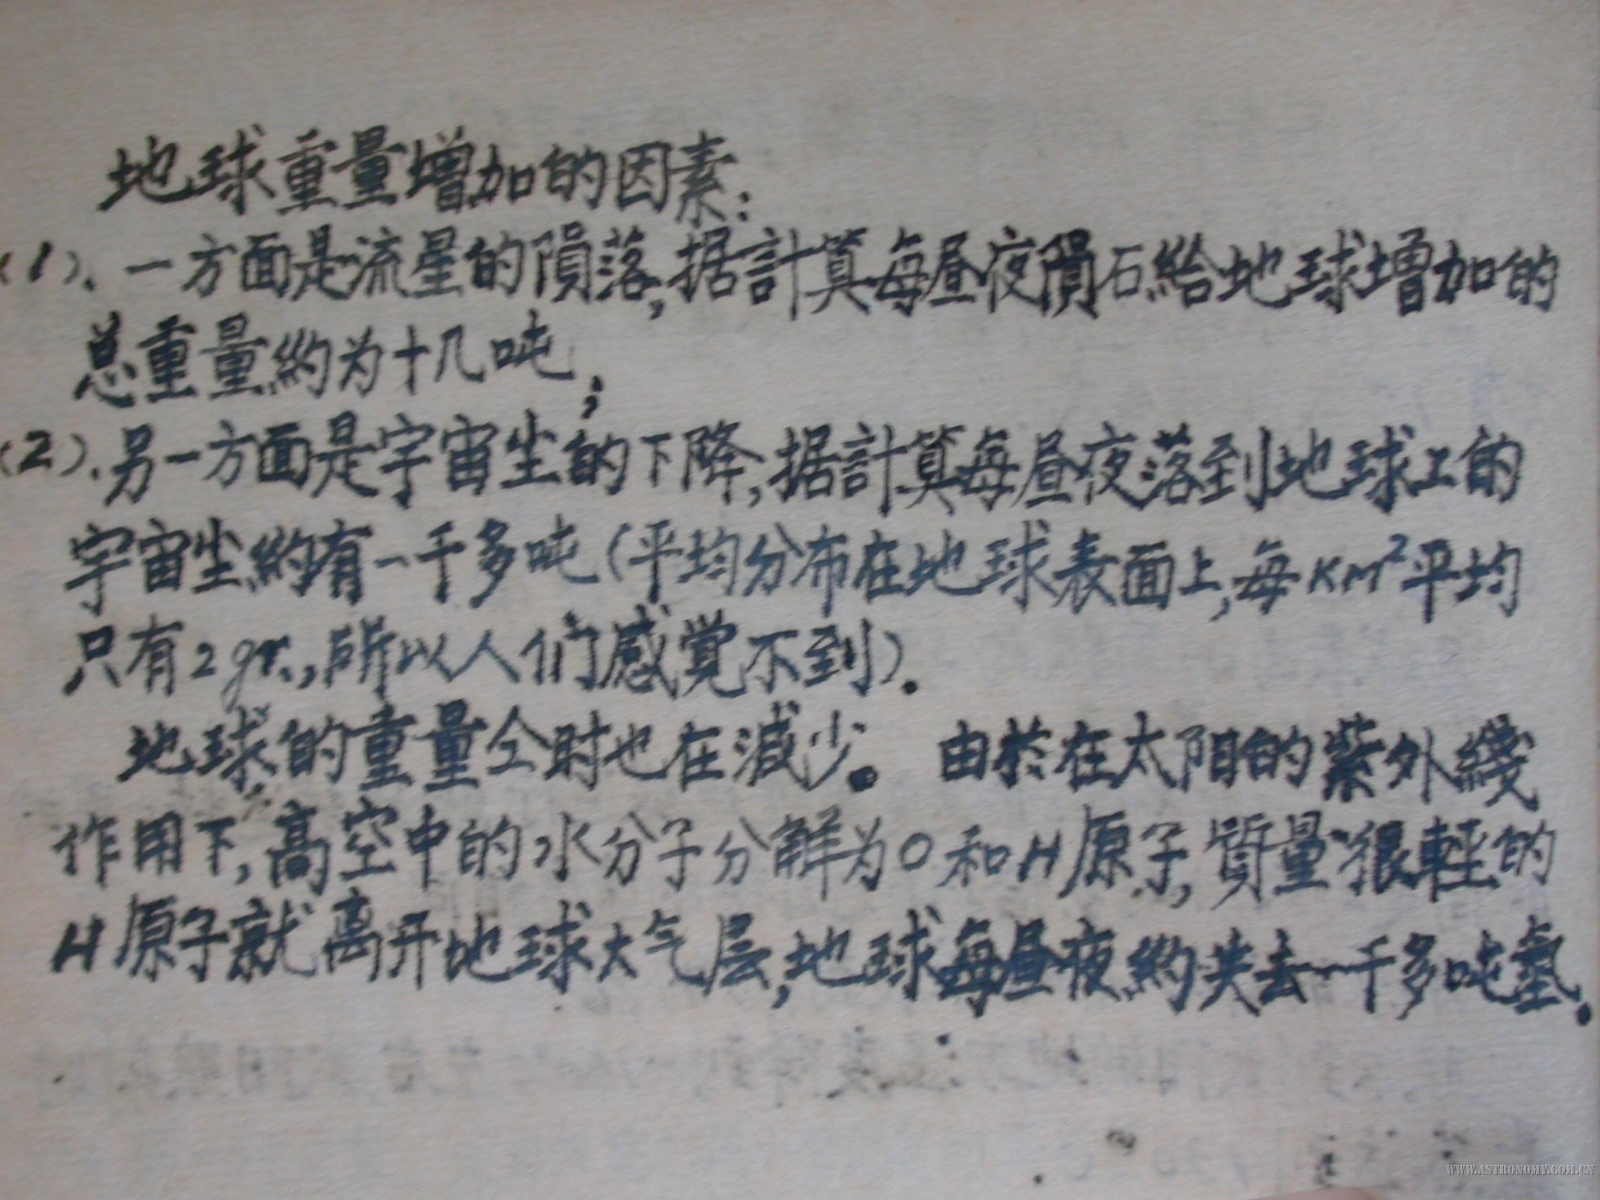 地球重量增加的因素:
(1)、一方面是流星的隕落,据計算每昼夜隕石給地球增加的
总重量約为十几吨;
(2)、另一方面是宇宙尘的下降,据計算每昼夜落到地球上的
宇宙尘約有一千多吨(平均分布在地球表面上,每KM²平均
只有2gr.,所以人们感覚不到)。
地球的重量仝时也在減少。由於在太阳的紫外綫
作用下,高空中的水分子分解为O和H原子,質量很輕的
H原子就离开地球大气层,地球每昼夜約失去一千多吨氫。
WWW.ASTRONOMY.COM.CN